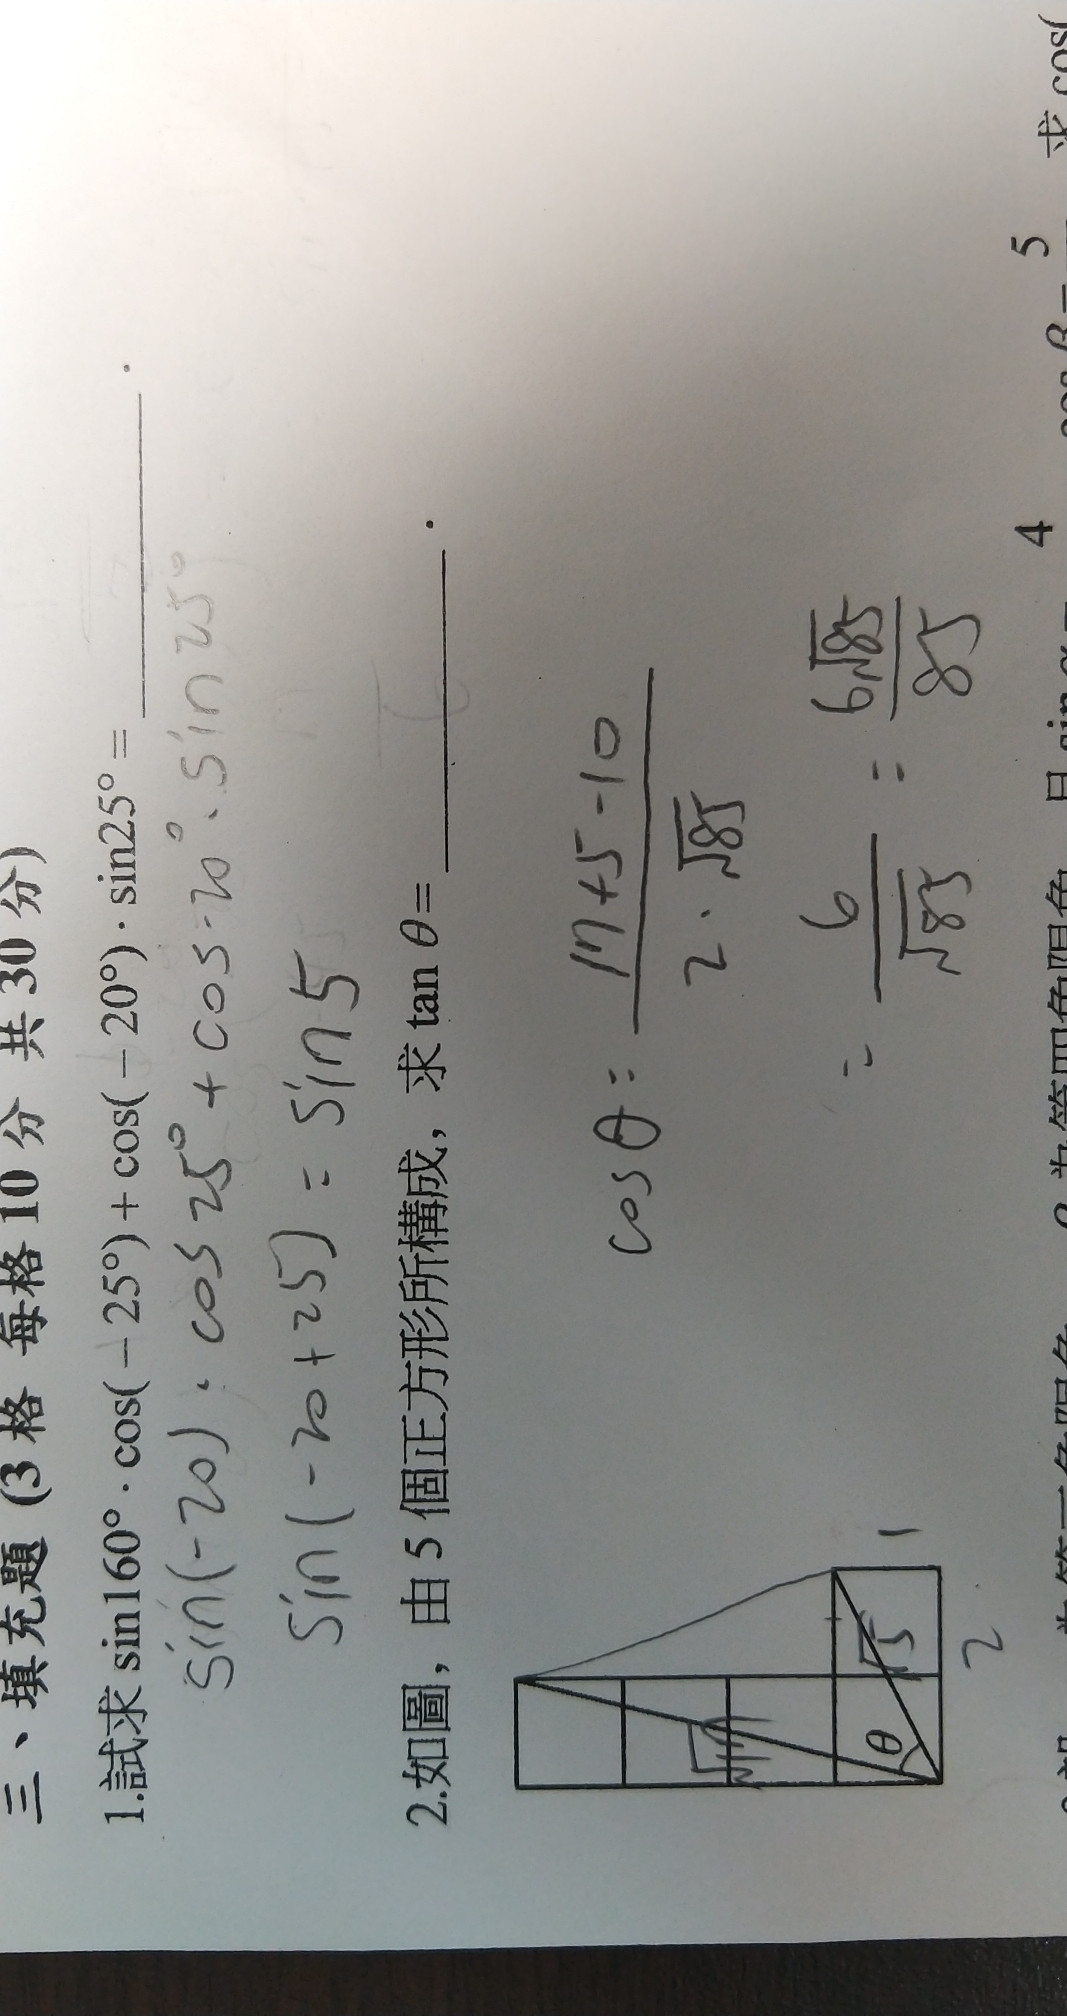 三、填充題 (3 格 每格 10 分 共 30 分)
1.試求 sin160°·cos(−25°)+cos(−20°)·sin25°= .
sin(-20)·cos25°+cos-20°·sin25°
sin(-20+25)=sin5
2.如圖, 由 5 個正方形所構成, 求 tan θ= .
cosθ= 17+5-10
2·√85
= 6 = 6√85
√85 85
√17
θ
√5
1
2
4
5
求 cos(